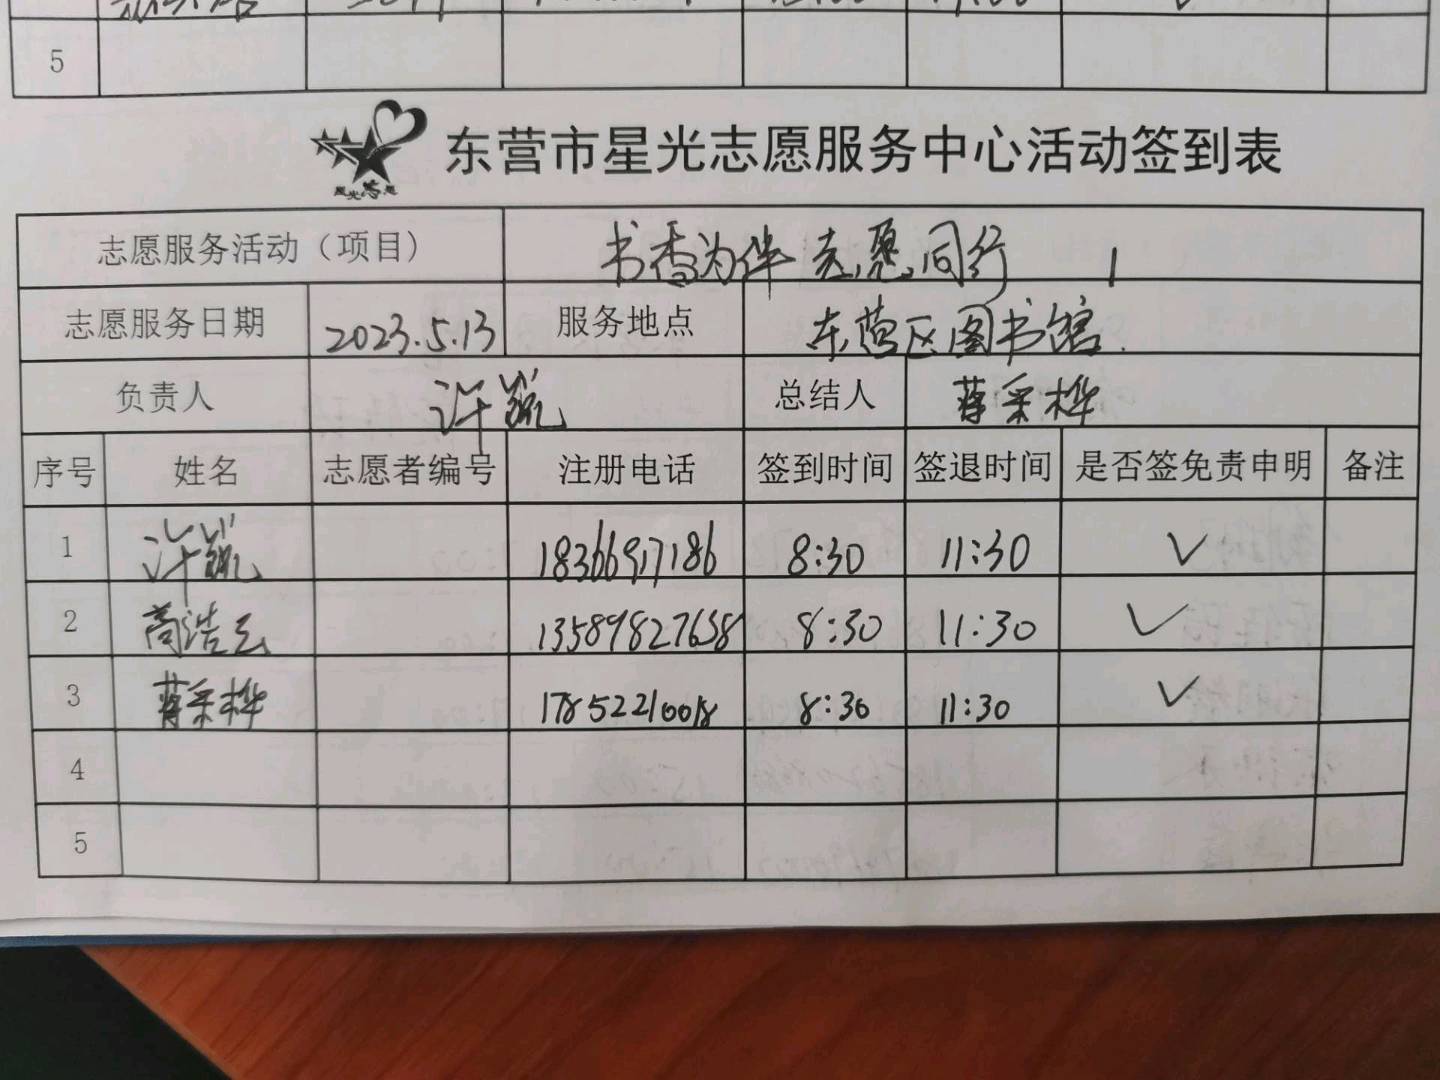 5
星光志愿
东营市星光志愿服务中心活动签到表
志愿服务活动（项目） 书香为伴 志愿同行 1
志愿服务日期 2023.5.13 服务地点 东营区图书馆.
负责人 许毓 总结人 蒋采桦
序号 姓名 志愿者编号 注册电话 签到时间 签退时间 是否签免责申明 备注
1 许毓 18366917186 8:30 11:30 ✓
2 尚浩云 13589827658 8:30 11:30 ✓
3 蒋采桦 17852210018 8:30 11:30 ✓
4
5